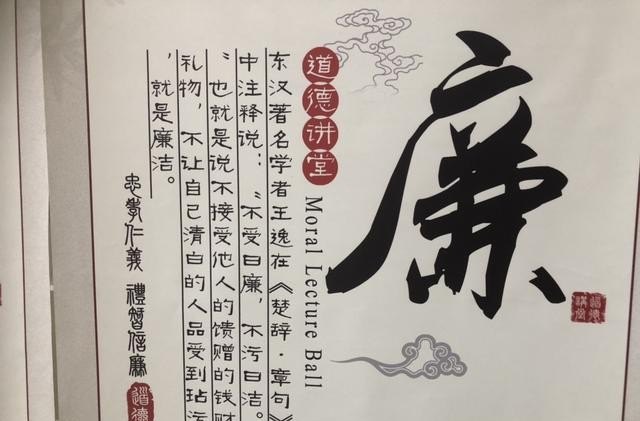 廉
道德講堂
道德讲堂
Moral Lecture Ball
东汉著名学者王逸在《楚辞·章句》
中注释说：“不受曰廉，不污曰洁。
”也就是说不接受他人的馈赠的钱财
礼物，不让自己清白的人品受到玷污
，就是廉洁。
忠孝仁義 禮智信廉
道德